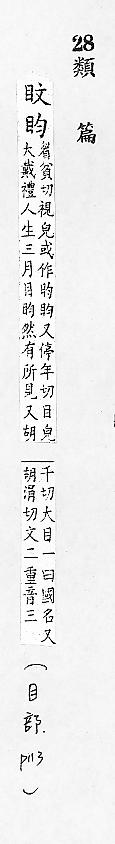 28類篇
盿盷
眉貧切視皃或作盷盷又停年切目皃
大戴禮人生三月目盷然有所見又胡
千切大目一曰國名又
胡涓切文二重音三
(目部. p113)